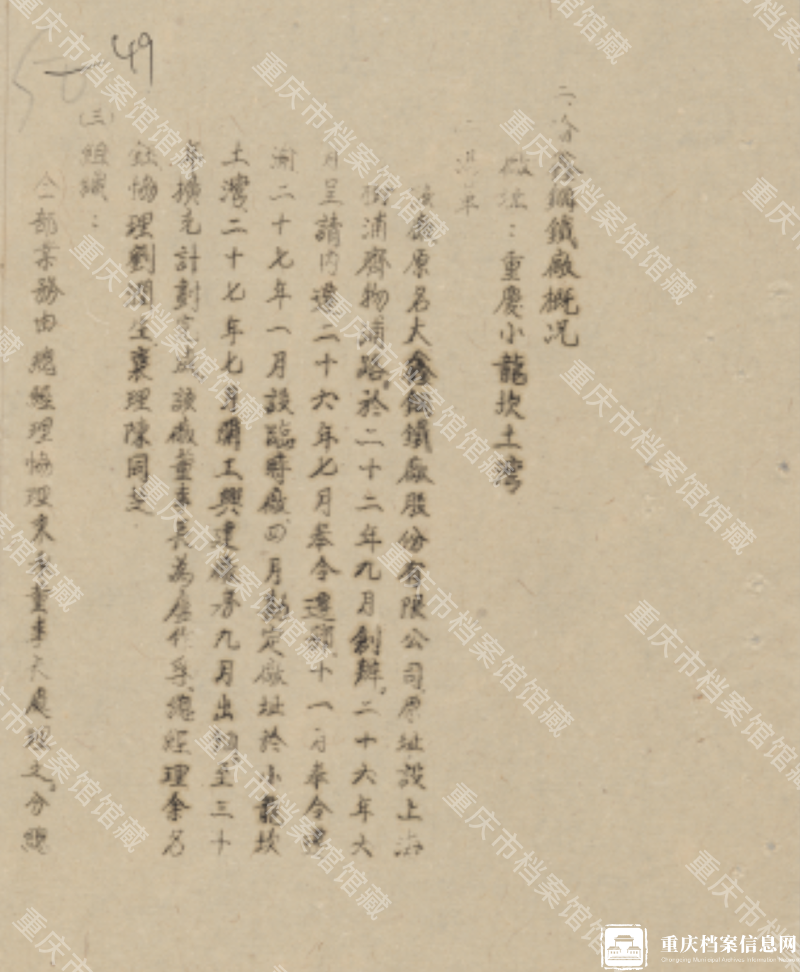 49
鑫鋼鐵廠概况
廠址：重慶小龍坎土灣
沿革
廠原名大鑫鋼鐵廠股份有限公司原址設上海
浦齊物浦路。於二十二年九月創辦。二十六年
月呈請內遷二十六年七月奉令遷漢。十一月奉令遷
渝二十七年一月設臨時廠四月勘定廠址於小龍坎
土灣。二十七年七月開工興建九月出鋼。至三十
年擴充計劃完成該廠董事長為盧作孚。總經理余名
鈺協理劉潤生襄理陳同芝
(三)組織：
全部業務由總經理協理秉承董事會處理之。分總
重庆市档案馆馆藏
重庆档案信息网